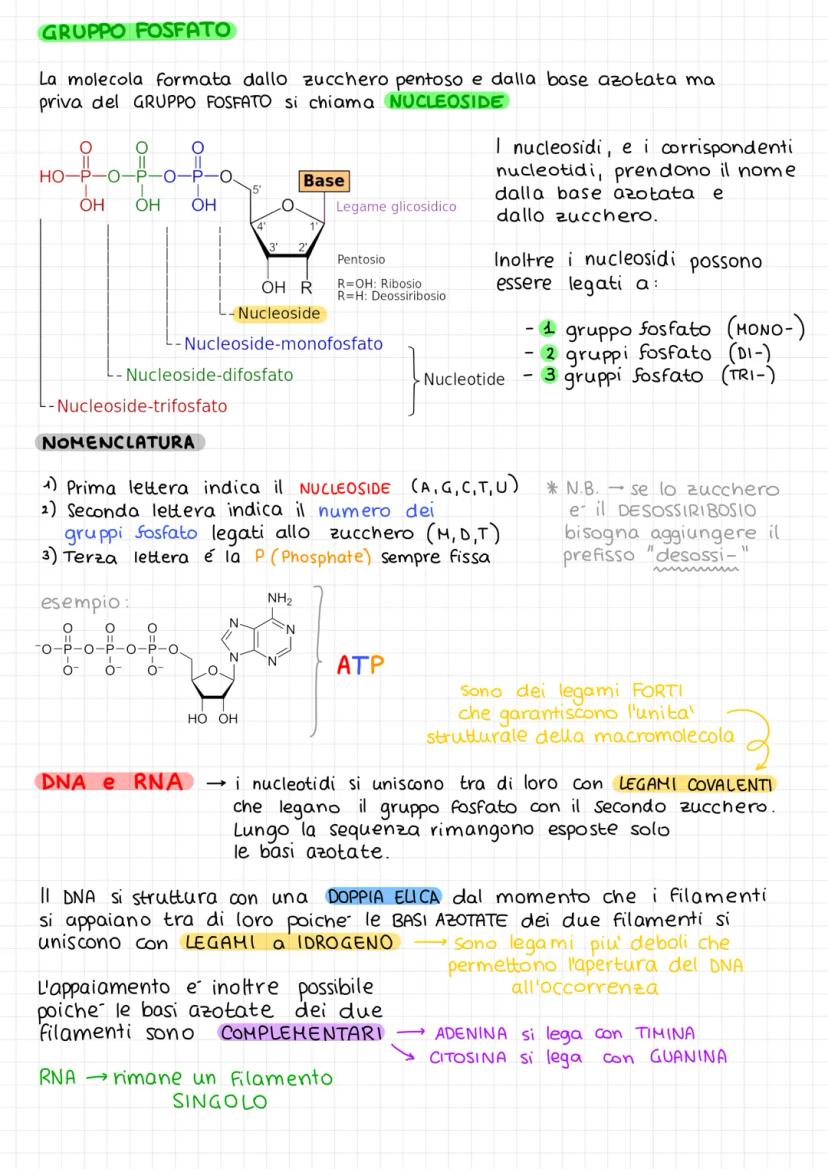 GRUPPO FOSFATO
La molecola formata dallo zucchero pentoso e dalla base azotata ma
priva del GRUPPO FOSFATO si chiama NUCLEOSIDE
O O O
HO-P-O-P-O-P-O
OH OH OH
5'
Base
O
Legame glicosidico
4' 1'
3' 2'
OH R
Pentosio
R=OH: Ribosio
R=H: Deossiribosio
Nucleoside
Nucleoside-monofosfato
Nucleoside-difosfato
Nucleotide
Nucleoside-trifosfato
I nucleosidi, e i corrispondenti
nucleotidi, prendono il nome
dalla base azotata e
dallo zucchero.
Inoltre i nucleosidi possono
essere legati a:
- 1 gruppo fosfato (MONO-)
- 2 gruppi fosfato (DI-)
- 3 gruppi fosfato (TRI-)
NOMENCLATURA
1) Prima lettera indica il NUCLEOSIDE (A,G,C,T,U)
2) Seconda lettera indica il numero dei
gruppi fosfato legati allo zucchero (M,D,T)
3) Terza lettera é la P (Phosphate) sempre fissa
* N.B. → se lo zucchero
e' il DESOSSIRIBOSIO
bisogna aggiungere il
prefisso "desossi-"
esempio:
NH₂
N N
N N
O O O
⁻O-P-O-P-O-P-O
O⁻ O⁻ O⁻
O
HO OH
ATP
sono dei legami FORTI
che garantiscono l'unita'
strutturale della macromolecola
DNA e RNA → i nucleotidi si uniscono tra di loro con LEGAMI COVALENTI
che legano il gruppo fosfato con il secondo zucchero.
Lungo la sequenza rimangono esposte solo
le basi azotate.
Il DNA si struttura con una DOPPIA ELICA dal momento che i filamenti
si appaiano tra di loro poiche' le BASI AZOTATE dei due filamenti si
uniscono con LEGAMI a IDROGENO → sono legami piu' deboli che
permettono l'apertura del DNA
all'occorrenza
L'appaiamento e' inoltre possibile
poiche' le basi azotate dei due
filamenti sono COMPLEMENTARI → ADENINA si lega con TIMINA
↘ CITOSINA si lega con GUANINA
RNA → rimane un filamento
SINGOLO